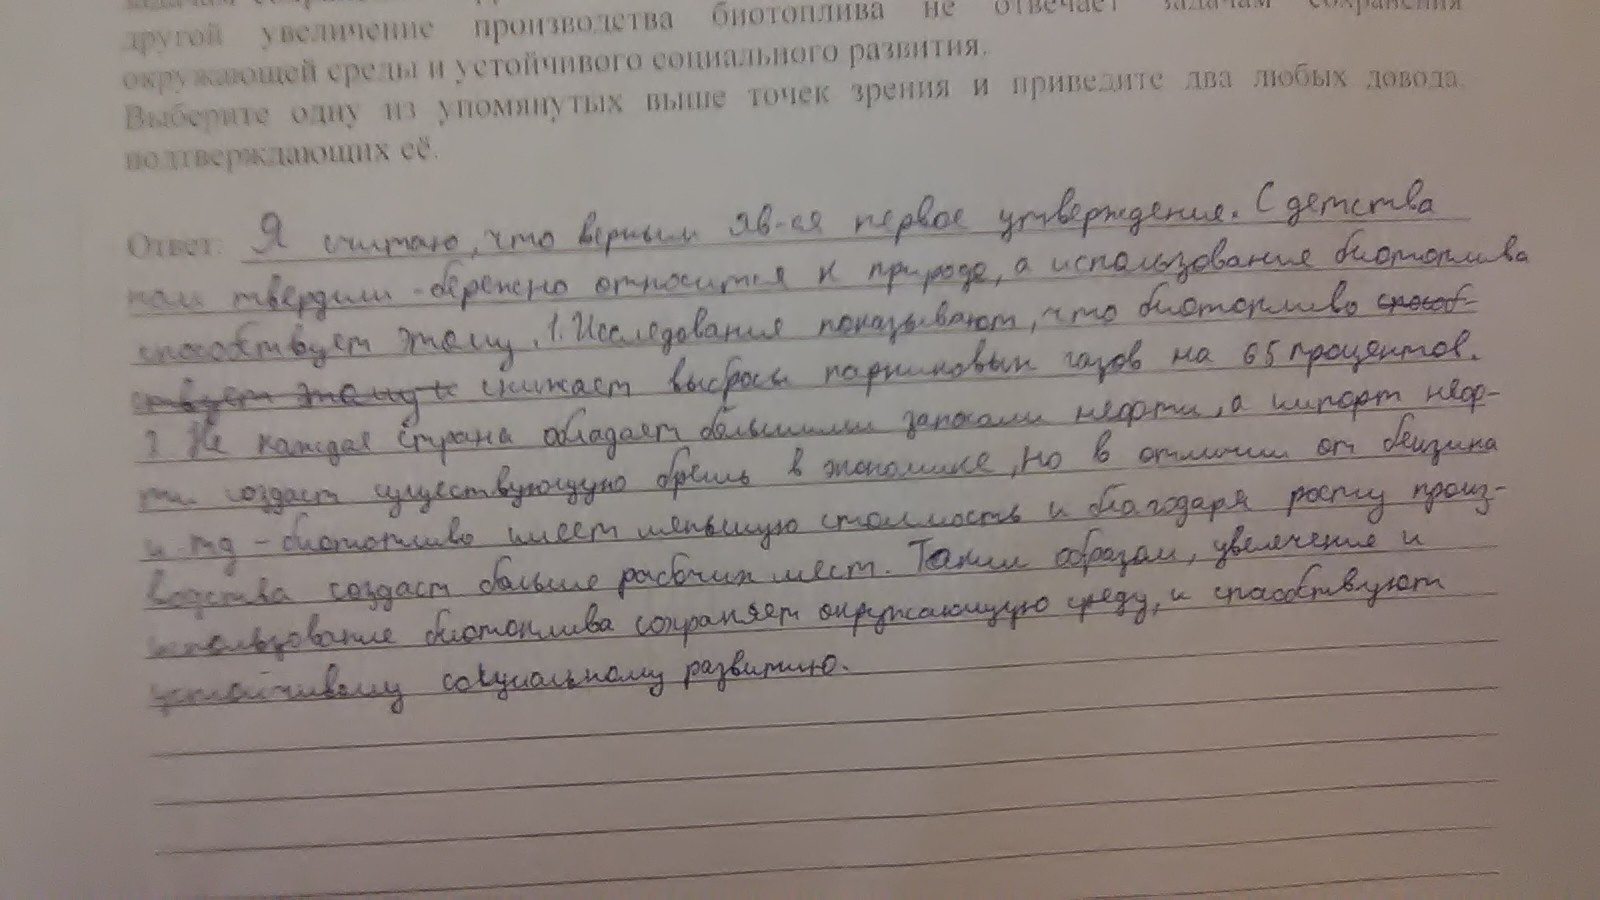 другой увеличение производства биотоплива не отвечает задачам сохранения
окружающей среды и устойчивого социального развития.
Выберите одну из упомянутых выше точек зрения и приведите два любых довода,
подтверждающих её.
Ответ: Я считаю, что верным яв-ся первое утверждение. С детства
нам твердили - бережно относится к природе, а использование биотоплива
способствует этому. 1. Исследования показывают, что биотопливо способ-
ствует этому и снижает выбросы парниковых газов на 65 процентов.
2 Не каждая страна обладает большими запасами нефти, а импорт неф-
ти создаст существующую брешь в экономике, но в отличии от бензина
и тд - биотопливо имеет меньшую стоимость и благодаря росту произ-
водства создаст больше рабочих мест. Таким образом, увеличение и
использование биотоплива сохраняет окружающую среду, и способствуют
устойчивому социальному развитию.